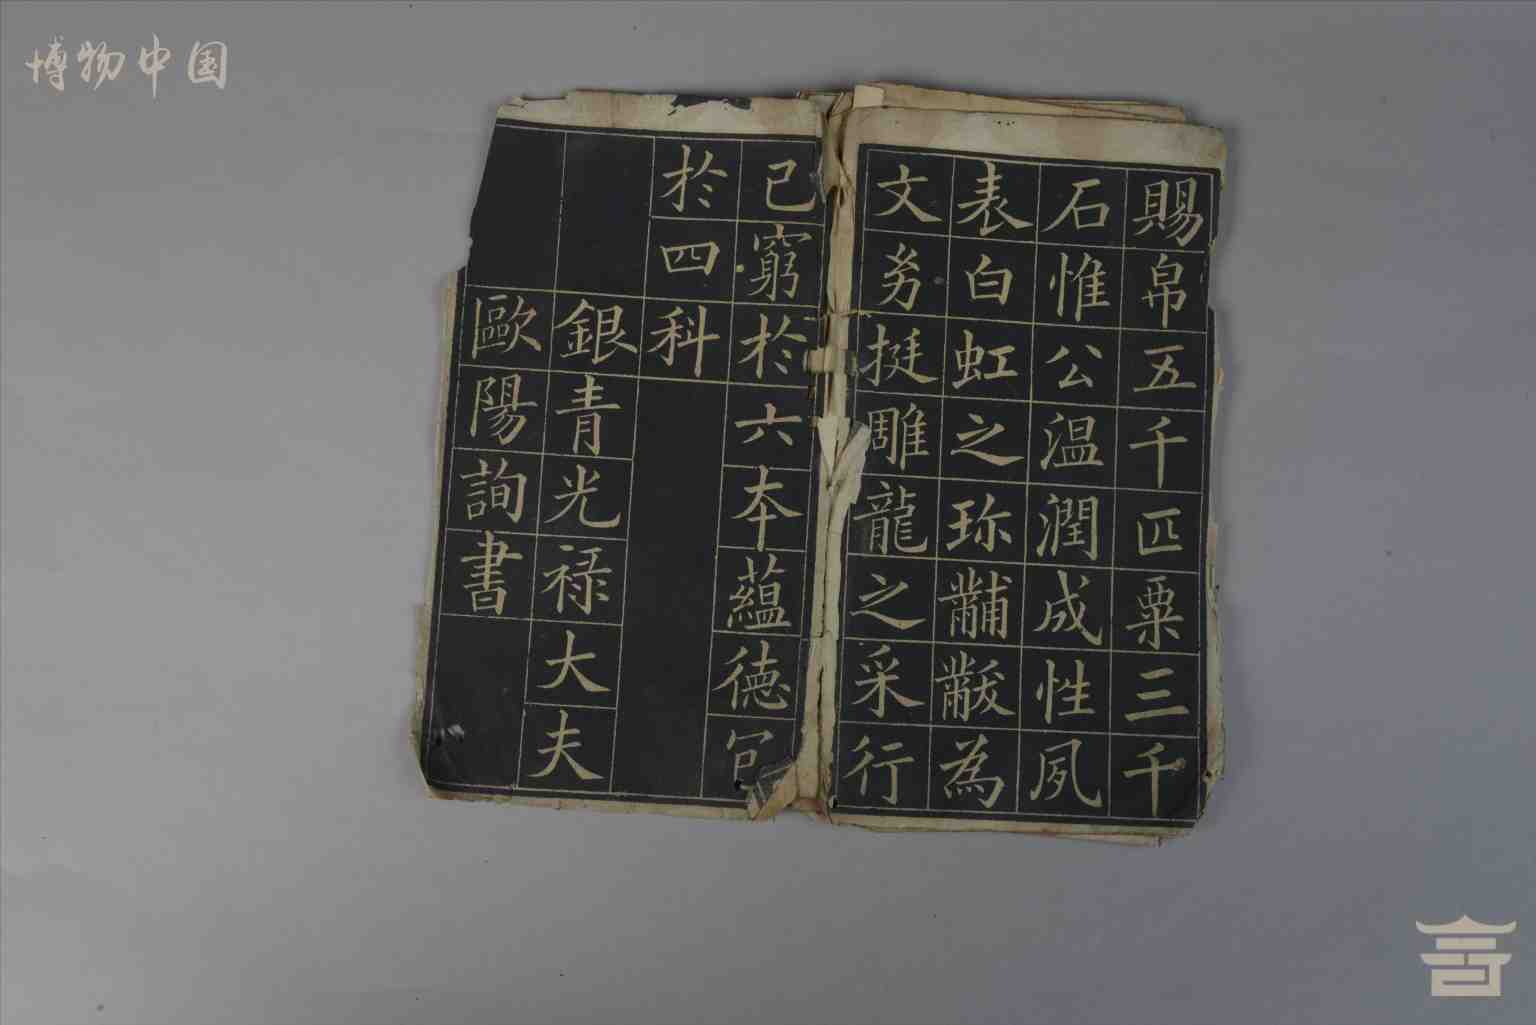 博物中国
賜帛五千匹粟三千
石惟公温潤成性夙
表白虹之珎黼黻為
文夯挺雕龍之采行
已窮於六夲藴徳包
於四科
銀青光禄大夫
歐陽詢書